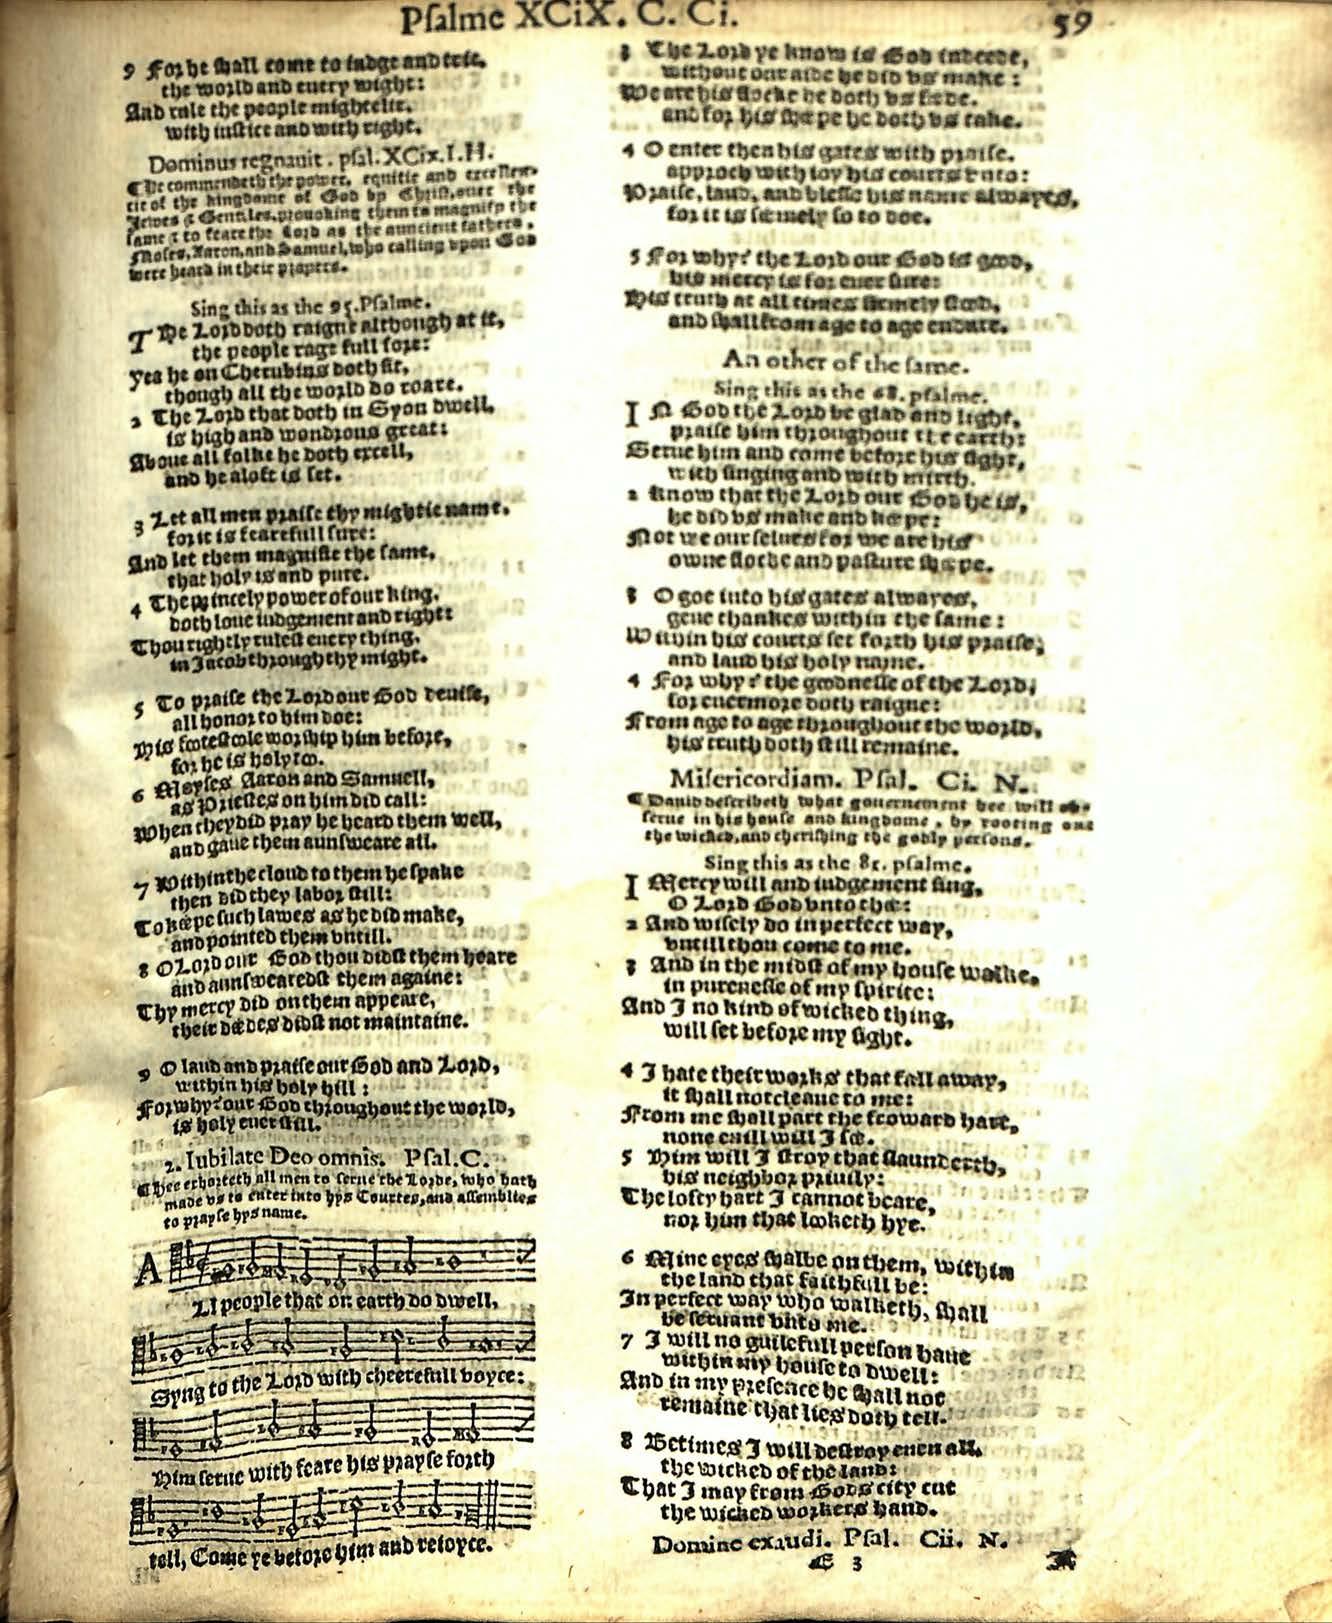 Psalme XCiX. C. Ci.
59
9 For he shall come to iudge and trie,
the world and euery wight:
And rule the people mightelie,
with iustice and with right.
Dominus regnauit. psal. XCix. I. H.
¶ He commendeth the power, equitie and excellen-
cie of the kingdome of God by Christ, ouer the
Iewes & Gentiles, prouoking them to magnify the
same & to feare the Lord as the auncient fathers,
Moses, Aaron, and Samuel, who calling vpon God
were heard in their prayers.
Sing this as the 95. Psalme.
THe Lord doth raigne although at it,
the people rage full sore:
Yea he on Cherubins doth sit,
though all the world do roare.
2 The Lord that doth in Syon dwell,
is high and wondrous great:
Aboue all folke he doth excell,
and he aloft is set.
3 Let all men praise thy mightie name,
for it is fearefull sure:
And let them magnifie the same,
that holy is and pure.
4 The princely power of our king,
doth loue iudgement and right:
Thou rightly rulest euery thing,
in Jacob through thy might.
5 To praise the Lord our God deuise,
all honor to him doe:
His footestoole worship him before,
for he is holy too.
6 Moyses Aaron and Samuell,
as Priestes on him did call:
When they did pray he heard them well,
and gaue them aunsweare all.
7 Within the cloud to them he spake
then did they labor still:
To keepe such lawes as he did make,
and pointed them vntill.
8 O Lord our God thou didst them heare
and aunswearedst them againe:
Thy mercy did on them appeare,
their deedes didst not maintaine.
9 O laud and praise our God and Lord,
within his holy hill:
For why? our God throughout the world,
is holy euer still.
2. Iubilate Deo omnis. Psal. C.
¶ Hee exhorteth all men to serue the Lorde, who hath
made vs to enter into hys Courtes, and assemblies
to prayse hys name.
A
Ll people that on earth do dwell,
Syng to the Lord with cheerefull voyce:
Him serue with feare his prayse forth
tell, Come ye before him and reioyce.
3 The Lord ye know is God indeede,
without our aide he did vs make:
We are his flocke he doth vs feede,
and for his sheepe he doth vs take.
4 O enter then his gates with praise,
approch with ioy his courts vnto:
Praise, laud, and blesse his name alwayes,
for it is seemely so to doe.
5 For why? the Lord our God is good,
his mercy is for euer sure:
His truth at all times firmely stood,
and shall from age to age endure.
An other of the same.
Sing this as the 68. psalme.
IN God the Lord be glad and light,
praise him throughout the earth:
Serue him and come before his sight,
with singing and with mirth.
2 Know that the Lord our God he is,
he did vs make and keepe:
Not we our selues for we are his
owne flocke and pasture sheepe.
3 O goe into his gates alwayes,
geue thankes within the same:
Within his courts set forth his praise,
and laud his holy name.
4 For why? the goodnesse of the Lord,
for euermore doth raigne:
From age to age throughout the world,
his truth doth still remaine.
Misericordiam. Psal. Ci. N.
¶ Dauid describeth what gouernement hee will ob-
serue in his house and kingdome, by rooting out
the wicked, and cherishing the godly persons.
Sing this as the 81. psalme.
I Mercy will and iudgement sing,
O Lord God vnto thee:
2 And wisely do in perfect way,
vntill thou come to me.
3 And in the midst of my house walke,
in purenesse of my spirite:
And I no kind of wicked thing,
will set before my sight.
4 I hate their works that fall away,
it shall not cleaue to me:
From me shall part the froward hart,
none euill will I see.
5 Him will I stroy that slaundreth,
his neighbor priuily:
The lofty hart I cannot beare,
nor him that looketh hye.
6 Mine eyes shalbe on them, within
the land that faithfull be:
In perfect way who walketh, shall
be seruant vnto me.
7 I will no guilefull person haue
within my house to dwell:
And in my presence he shall not
remaine that lies doth tell.
8 Betimes I will destroy euen all,
the wicked of the land:
That I may from Gods city cut
the wicked workers hand.
Domine exaudi. Psal. Cii. N.
E 3